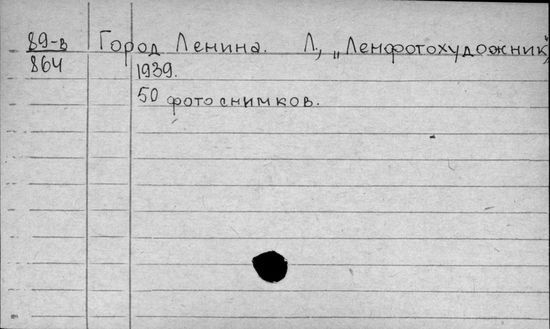 89-в Город Ленина. Л., „Ленфотохудожник",
864 1939.
50 фотоснимков.